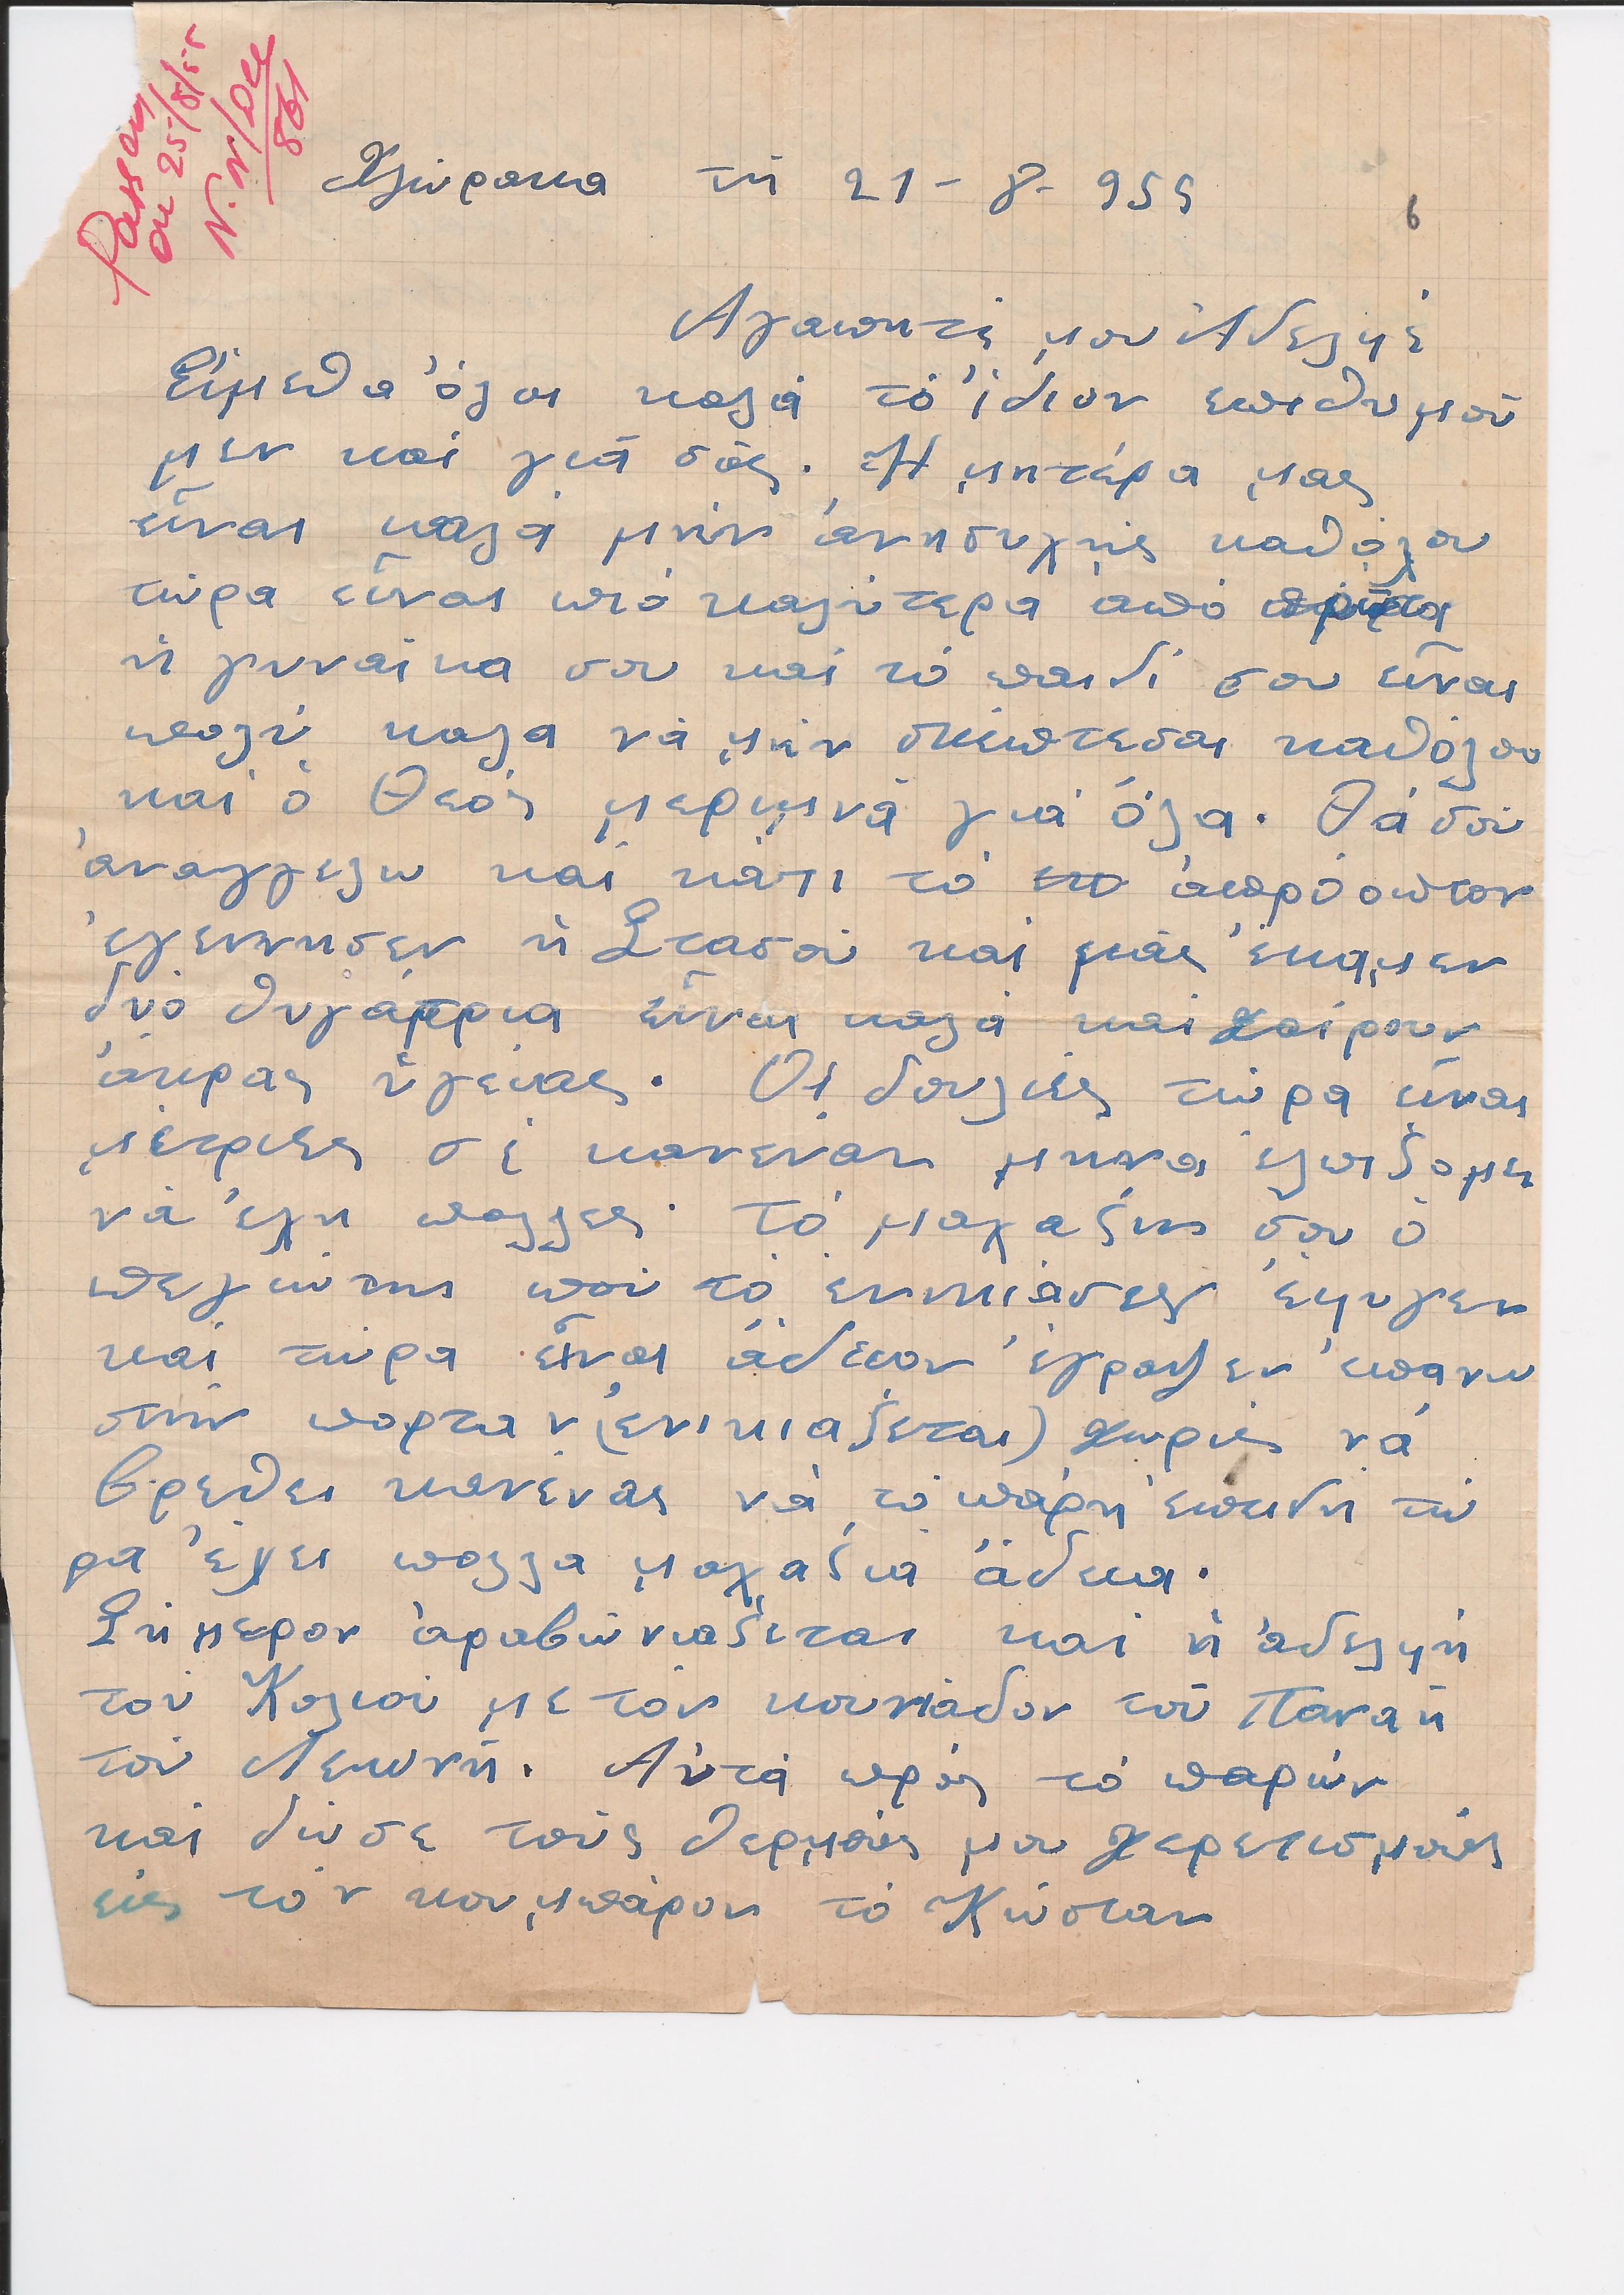 Passed
on 25/8/55
N.N/Dec
861
Χλώρακα τη 21-8-955
6
Αγαπητέ μου Αδελφέ
Είμεθα όλοι καλά τό ίδιον επιθυμού
μεν καί γιά σάς. Η μητέρα μας
είναι καλά μήν άνησυχής καθόλου
τώρα είναι πιό καλύτερα από πρώτα
ή γυναίκα σου καί τό παιδί σου είναι
πολύ καλα νά μήν σκέπτεσαι καθόλου
καί ό Θεός μεριμνά γιά όλα. Θά σού
άναγγειλω καί κάτι τό άπρόοπτον
έγεννησεν ή Στασού καί μάς έκαμεν
δυό θυγάτρια είναι καλά καί χαίρουν
άκρας ύγείας. Οί δουλιές τώρα είναι
μέτριες σέ κανεναν μηνα έλπιζομεν
νά έχη πολλες. τό μαγαζίν σου ό
πελλώτης πού τό ενικίασες έφυγεν
καί τώρα είναι άδειον έγραψεν έπανω
στήν πορταν (ενικιαζεται) χωρίς νά
βρεθει κανένας νά τό πάρη έπειδη τώ
ρα έχει πολλα μαγαζια άδεια.
Σήμερον άραβώνιαζεται καί ή άδελφή
τού Κολιού με τον κουνιάδον τού Παναή
τού Λεωνή. Αύτά πρός τό παρών
καί δώσε τούς θερμούς μου χερετισμούς
είς τόν κουμπάρον τό Κώσταν